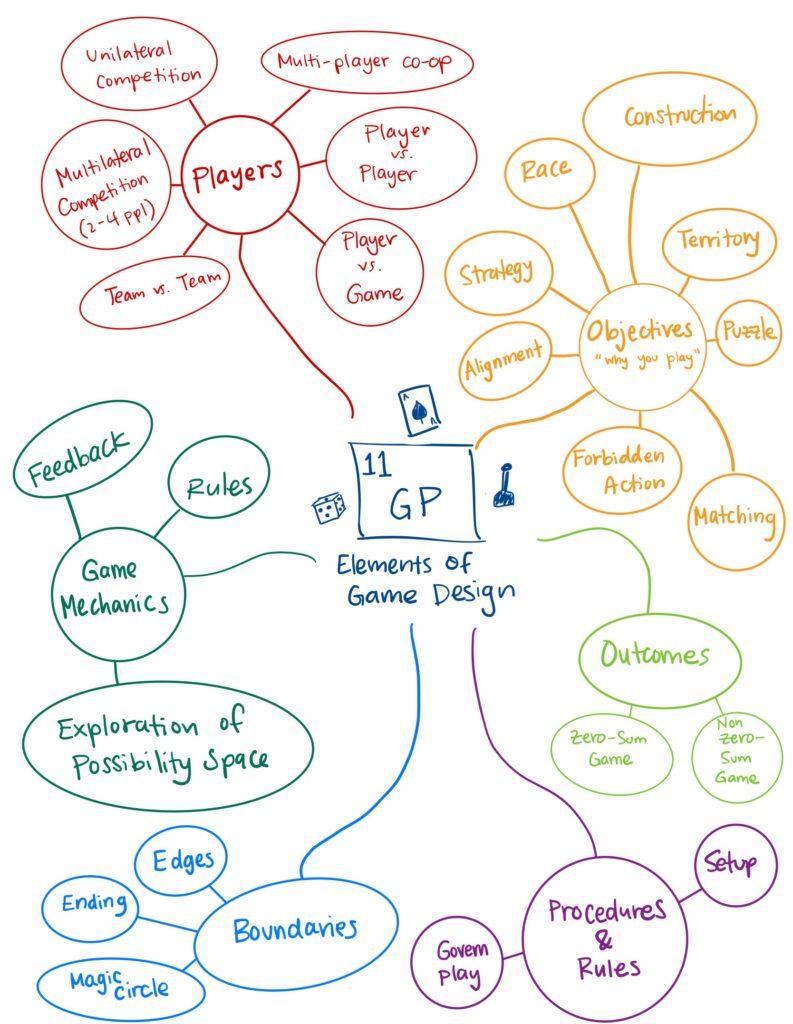 Unilateral
Competition
Multi-player co-op
Multilateral
Competition
(2-4 ppl)
Players
Player
vs.
Player
Team vs. Team
Player
vs.
Game
Construction
Race
Territory
Strategy
Objectives
"why you play"
Puzzle
Alignment
Forbidden
Action
Matching
A
A
11
GP
Elements of
Game Design
Feedback
Rules
Game
Mechanics
Exploration of
Possibility Space
Outcomes
Zero-Sum
Game
Non
Zero-
Sum
Game
Edges
Ending
Boundaries
Magic
Circle
Setup
Procedures
&
Rules
Govern
play